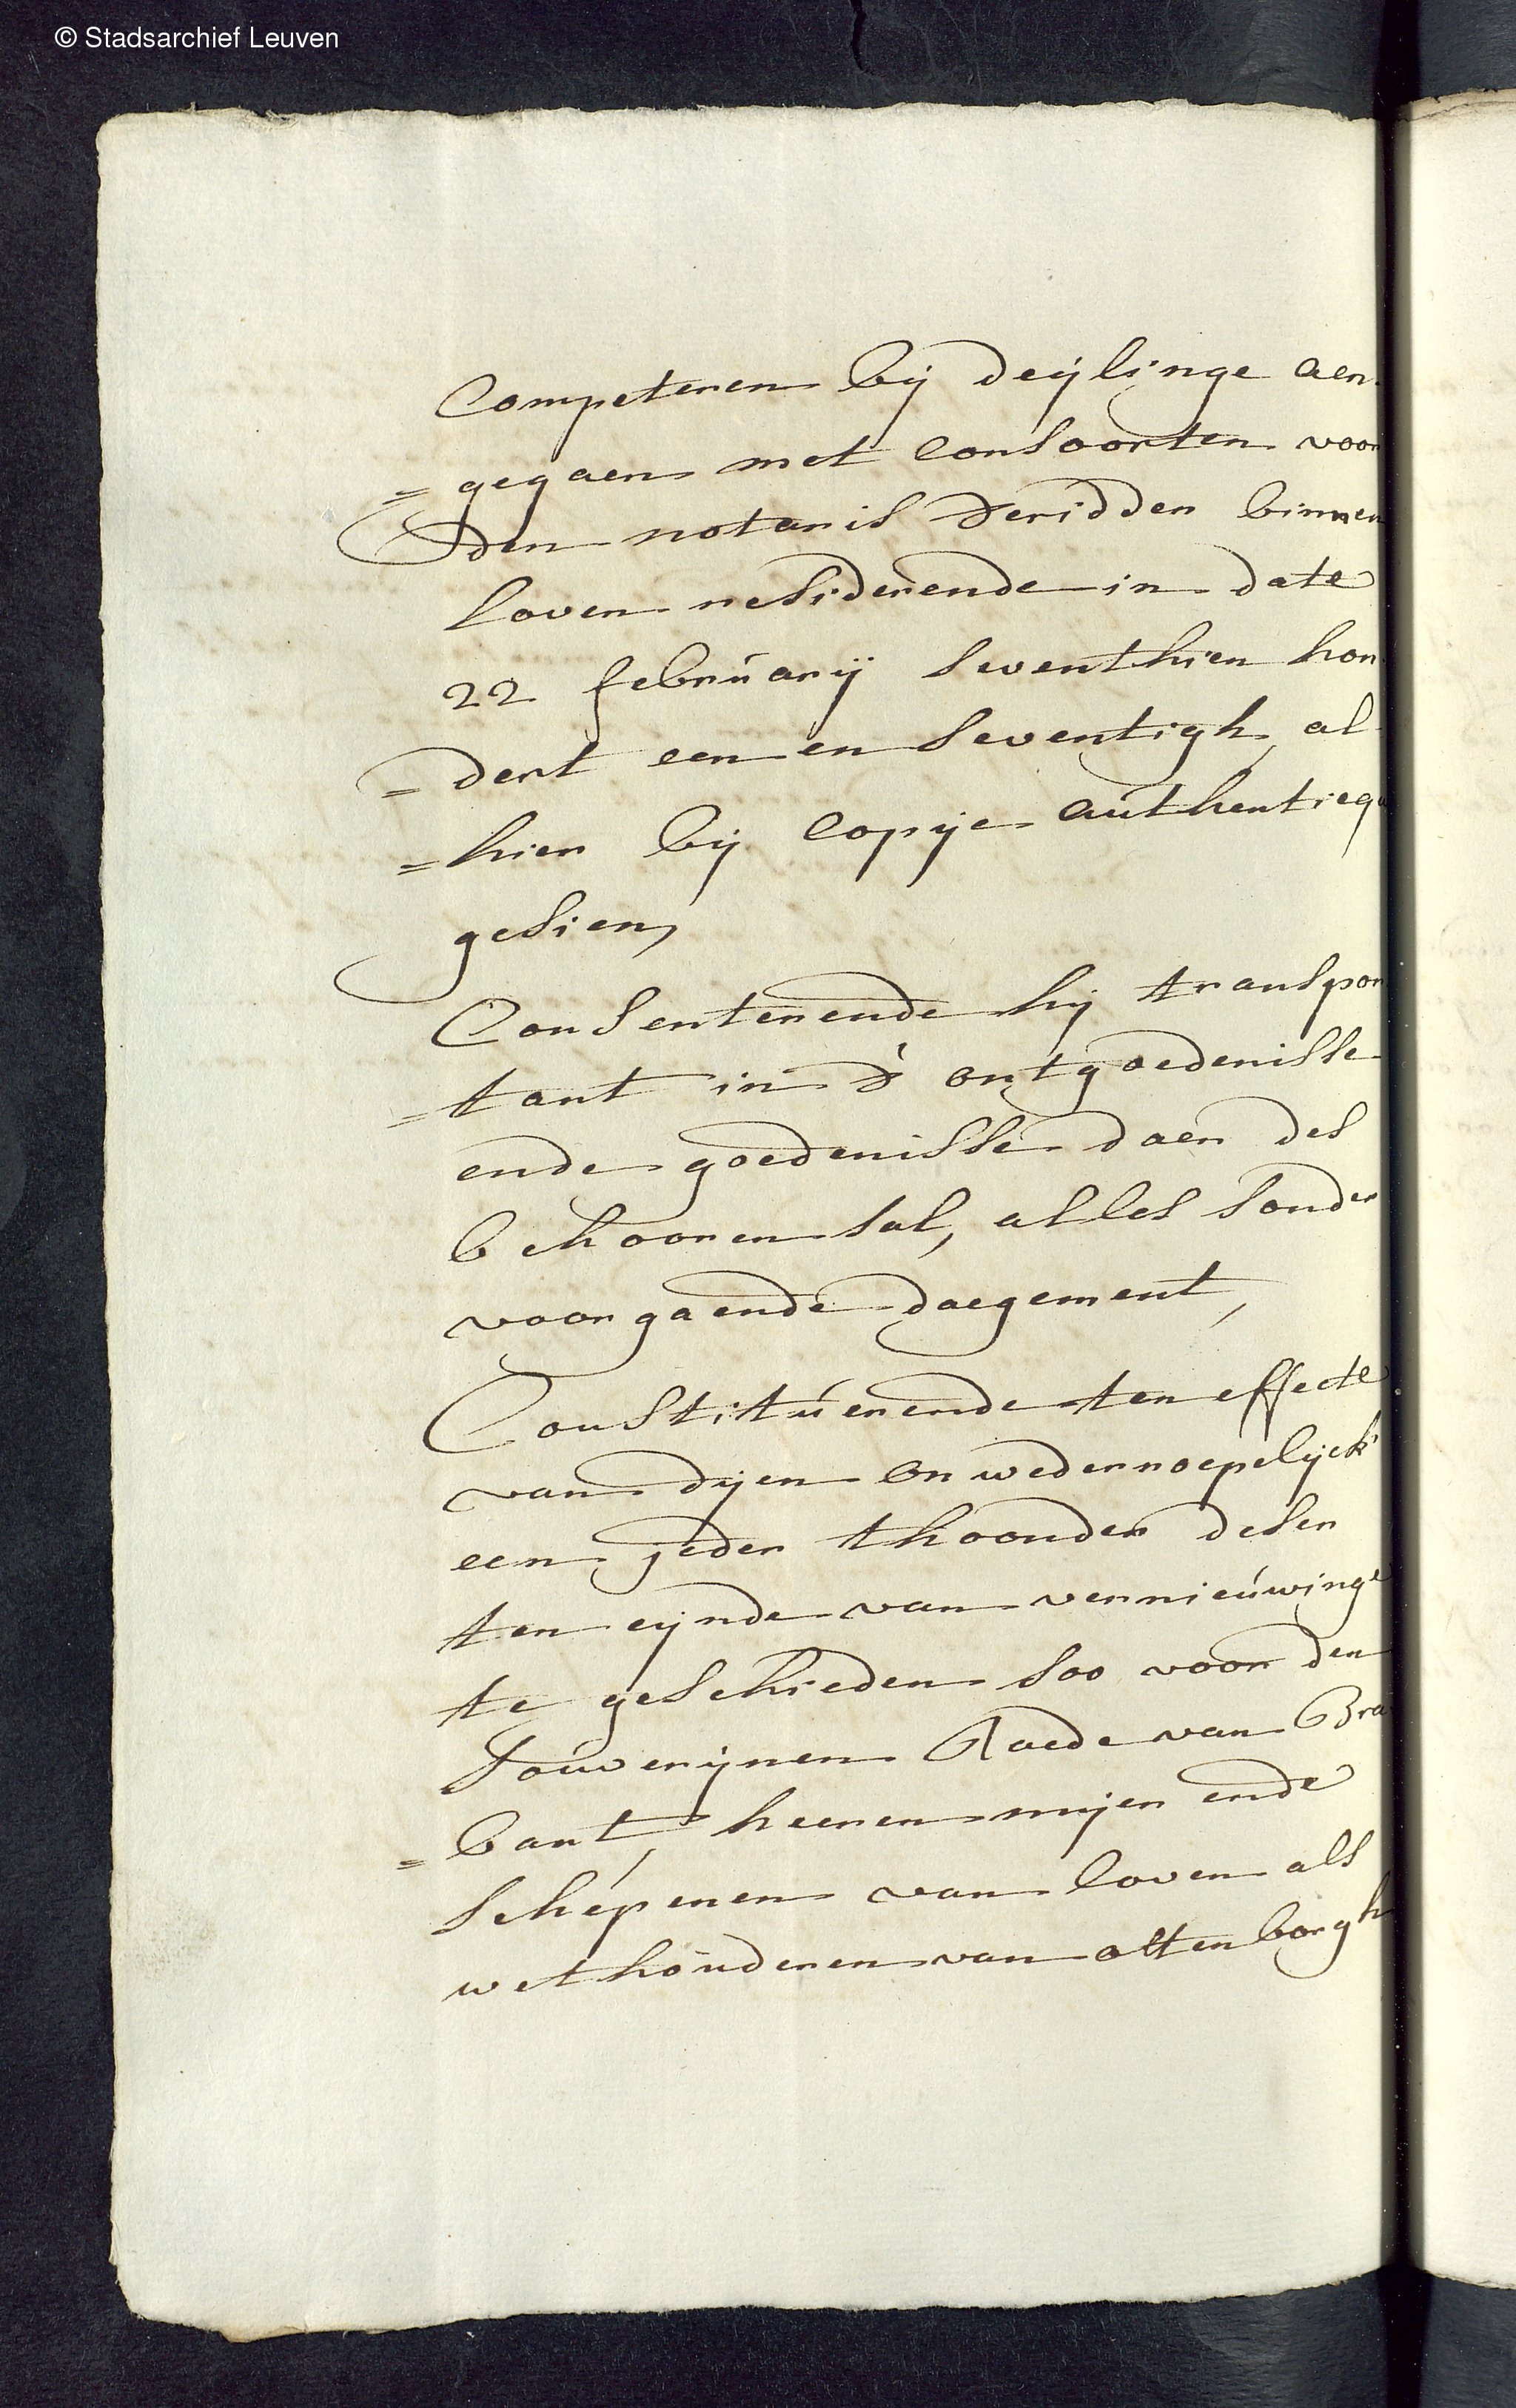 © Stadsarchief Leuven
Competeren bij deijlinge aen
=gegaen met consoorten voor
den notaris Deridder binnen
loven residerende in date
22 februarij seventhien hon
=dert een en seventigh, al
=hier bij copije authentiequ
gesien,
Consenterende hij transpor
=tant in d' ontgoedenisse
ende goedenisse daer des
behooren sal, alles sonder
voorgaende daegement,
Constituerende ten effecte
van dijen onwederroepelijck
een jeder thoonder deser
ten eijnde van vernieuwinge
te geschieden soo voor den
souverijnen Raede van Bra
=bant, heeren meijer ende
schepenen van loven als
wethouderen van ottenborgh